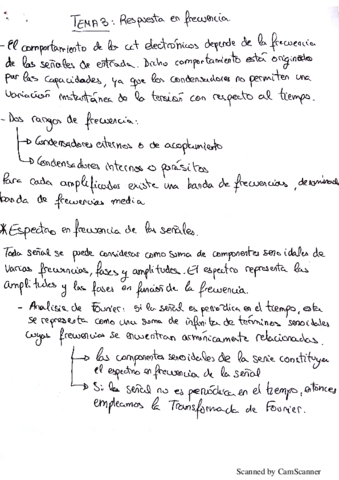 TEMA 3: Respuesta en frecuencia
- El comportamiento de los cct electrónicos depende de la frecuencia
de las señales de entrada. Dicho comportamiento está originado
por las capacidades, ya que los condensadores no permiten una
variación instantánea de la tensión con respecto al tiempo.
- Dos rangos de frecuencia:
↳ Condensadores externos o de acoplamiento
↳ Condensadores internos o parásitos
Para cada amplificador existe una banda de frecuencias, denominada
banda de frecuencias media
* Espectro en frecuencia de las señales.
Toda señal se puede considerar como suma de componentes senoidales de
varias frecuencias, fases y amplitudes. El espectro representa las
amplitudes y las fases en función de la frecuencia.
- Análisis de Fourier: Si la señal es periódica en el tiempo, esta
se representa como una suma de infinita de términos senoidales
cuyas frecuencias se encuentran armónicamente relacionadas.
↳ las componentes senoidales de la serie constituyen
el espectro en frecuencia de la señal
↳ Si la señal no es periódica en el tiempo, entonces
empleamos la Transformada de Fourier.
Scanned by CamScanner